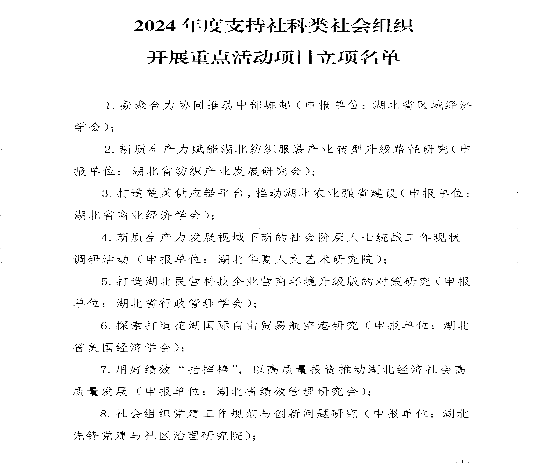 2024 年度支持社科类社会组织
开展重点活动项目立项名单
1. 协同推动中部崛起(申报单位:湖北省区域经济
学会);
2. 新质生产力赋能湖北纺织服装产业转型升级路径研究(申
报单位:湖北省纺织产业发展研究会);
3. 打造 供应链平台,推动湖北农业强省建设(申报单位:
湖北省商业经济学会);
4. 新质生产力发展视域下新的社会阶层人士统战工作现状
调研活动(申报单位:湖北华夏人文艺术研究院);
5. 打造湖北民营科技企业营商环境升级版的对策研究(申报
单位:湖北省行政管理学会);
6. 探索打造花湖国际自由贸易航空港研究(申报单位:湖北
省美国经济学会);
7. 用好绩效“指挥棒”,以高质量投资推动湖北经济社会高
质量发展(申报单位:湖北省绩效管理研究会);
8. 社会组织党建工作规范与创新问题研究(申报单位:湖北
先锋党建与社区治理研究院);